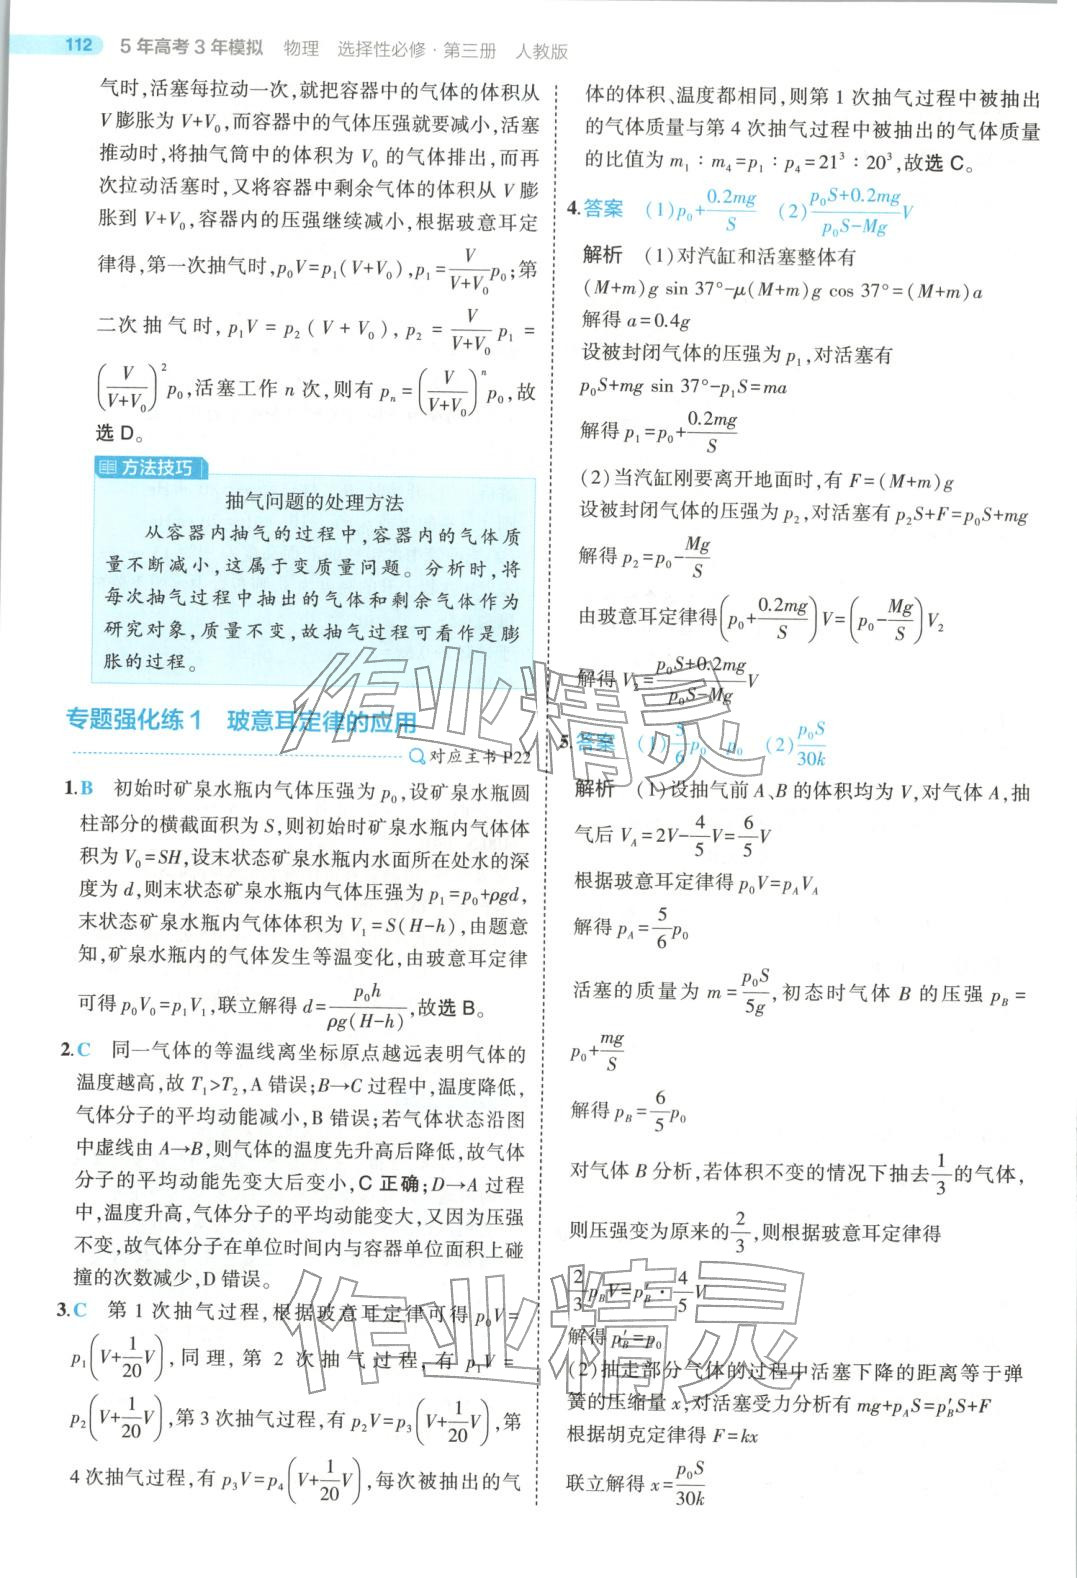 112 5年高考3年模拟 物理 选择性必修·第三册 人教版
气时,活塞每拉动一次,就把容器中的气体的体积从
V膨胀为V+V₀,而容器中的气体压强就要减小,活塞
推动时,将抽气筒中的体积为V₀的气体排出,而再
次拉动活塞时,又将容器中剩余气体的体积从V膨
胀到V+V₀,容器内的压强继续减小,根据玻意耳定
律得,第一次抽气时,p₀V=p₁(V+V₀),p₁=V/(V+V₀)p₀;第
二次抽气时,p₁V=p₂(V+V₀),p₂=V/(V+V₀)p₁=
(V/(V+V₀))²p₀,活塞工作n次,则有pₙ=(V/(V+V₀))ⁿp₀,故
选D。
方法技巧
抽气问题的处理方法
从容器内抽气的过程中,容器内的气体质
量不断减小,这属于变质量问题。分析时,将
每次抽气过程中抽出的气体和剩余气体作为
研究对象,质量不变,故抽气过程可看作是膨
胀的过程。
专题强化练1 玻意耳定律的应用
对应主书P22
1.B 初始时矿泉水瓶内气体压强为p₀,设矿泉水瓶圆
柱部分的横截面积为S,则初始时矿泉水瓶内气体体
积为V₀=SH,设末状态矿泉水瓶内水面所在处水的深
度为d,则末状态矿泉水瓶内气体压强为p₁=p₀+ρgd,
末状态矿泉水瓶内气体体积为V₁=S(H-h),由题意
知,矿泉水瓶内的气体发生等温变化,由玻意耳定律
可得p₀V₀=p₁V₁,联立解得d=p₀h/(ρg(H-h)),故选B。
2.C 同一气体的等温线离坐标原点越远表明气体的
温度越高,故T₁>T₂,A错误;B→C过程中,温度降低,
气体分子的平均动能减小,B错误;若气体状态沿图
中虚线由A→B,则气体的温度先升高后降低,故气体
分子的平均动能先变大后变小,C正确;D→A过程
中,温度升高,气体分子的平均动能变大,又因为压强
不变,故气体分子在单位时间内与容器单位面积上碰
撞的次数减少,D错误。
3.C 第1次抽气过程,根据玻意耳定律可得p₀V=
p₁(V+1/20V),同理,第2次抽气过程,有p₁V=
p₂(V+1/20V),第3次抽气过程,有p₂V=p₃(V+1/20V),第
4次抽气过程,有p₃V=p₄(V+1/20V),每次被抽出的气
体的体积、温度都相同,则第1次抽气过程中被抽出
的气体质量与第4次抽气过程中被抽出的气体质量
的比值为m₁∶m₄=p₁∶p₄=21³∶20³,故选C。
4.答案 (1)p₀+0.2mg/S (2)(p₀S+0.2mg)/(p₀S-Mg)V
解析 (1)对汽缸和活塞整体有
(M+m)g sin 37°-μ(M+m)g cos 37°=(M+m)a
解得a=0.4g
设被封闭气体的压强为p₁,对活塞有
p₀S+mg sin 37°-p₁S=ma
解得p₁=p₀+0.2mg/S
(2)当汽缸刚要离开地面时,有F=(M+m)g
设被封闭气体的压强为p₂,对活塞有p₂S+F=p₀S+mg
解得p₂=p₀-Mg/S
由玻意耳定律得(p₀+0.2mg/S)V=(p₀-Mg/S)V₂
解得V₂=(p₀S+0.2mg)/(p₀S-Mg)V
5.答案 (1)5/6p₀ p₀ (2)p₀S/30k
解析 (1)设抽气前A、B的体积均为V,对气体A,抽
气后V_A=2V-4/5V=6/5V
根据玻意耳定律得p₀V=p_AV_A
解得p_A=5/6p₀
活塞的质量为m=p₀S/5g,初态时气体B的压强p_B=
p₀+mg/S
解得p_B=6/5p₀
对气体B分析,若体积不变的情况下抽去1/3的气体,
则压强变为原来的2/3,则根据玻意耳定律得
2/3p_BV=p'_B·4/5V
解得p'_B=p₀
(2)抽走部分气体的过程中活塞下降的距离等于弹
簧的压缩量x,对活塞受力分析有mg+p_AS=p'_BS+F
根据胡克定律得F=kx
联立解得x=p₀S/30k
作业精灵
作业精灵